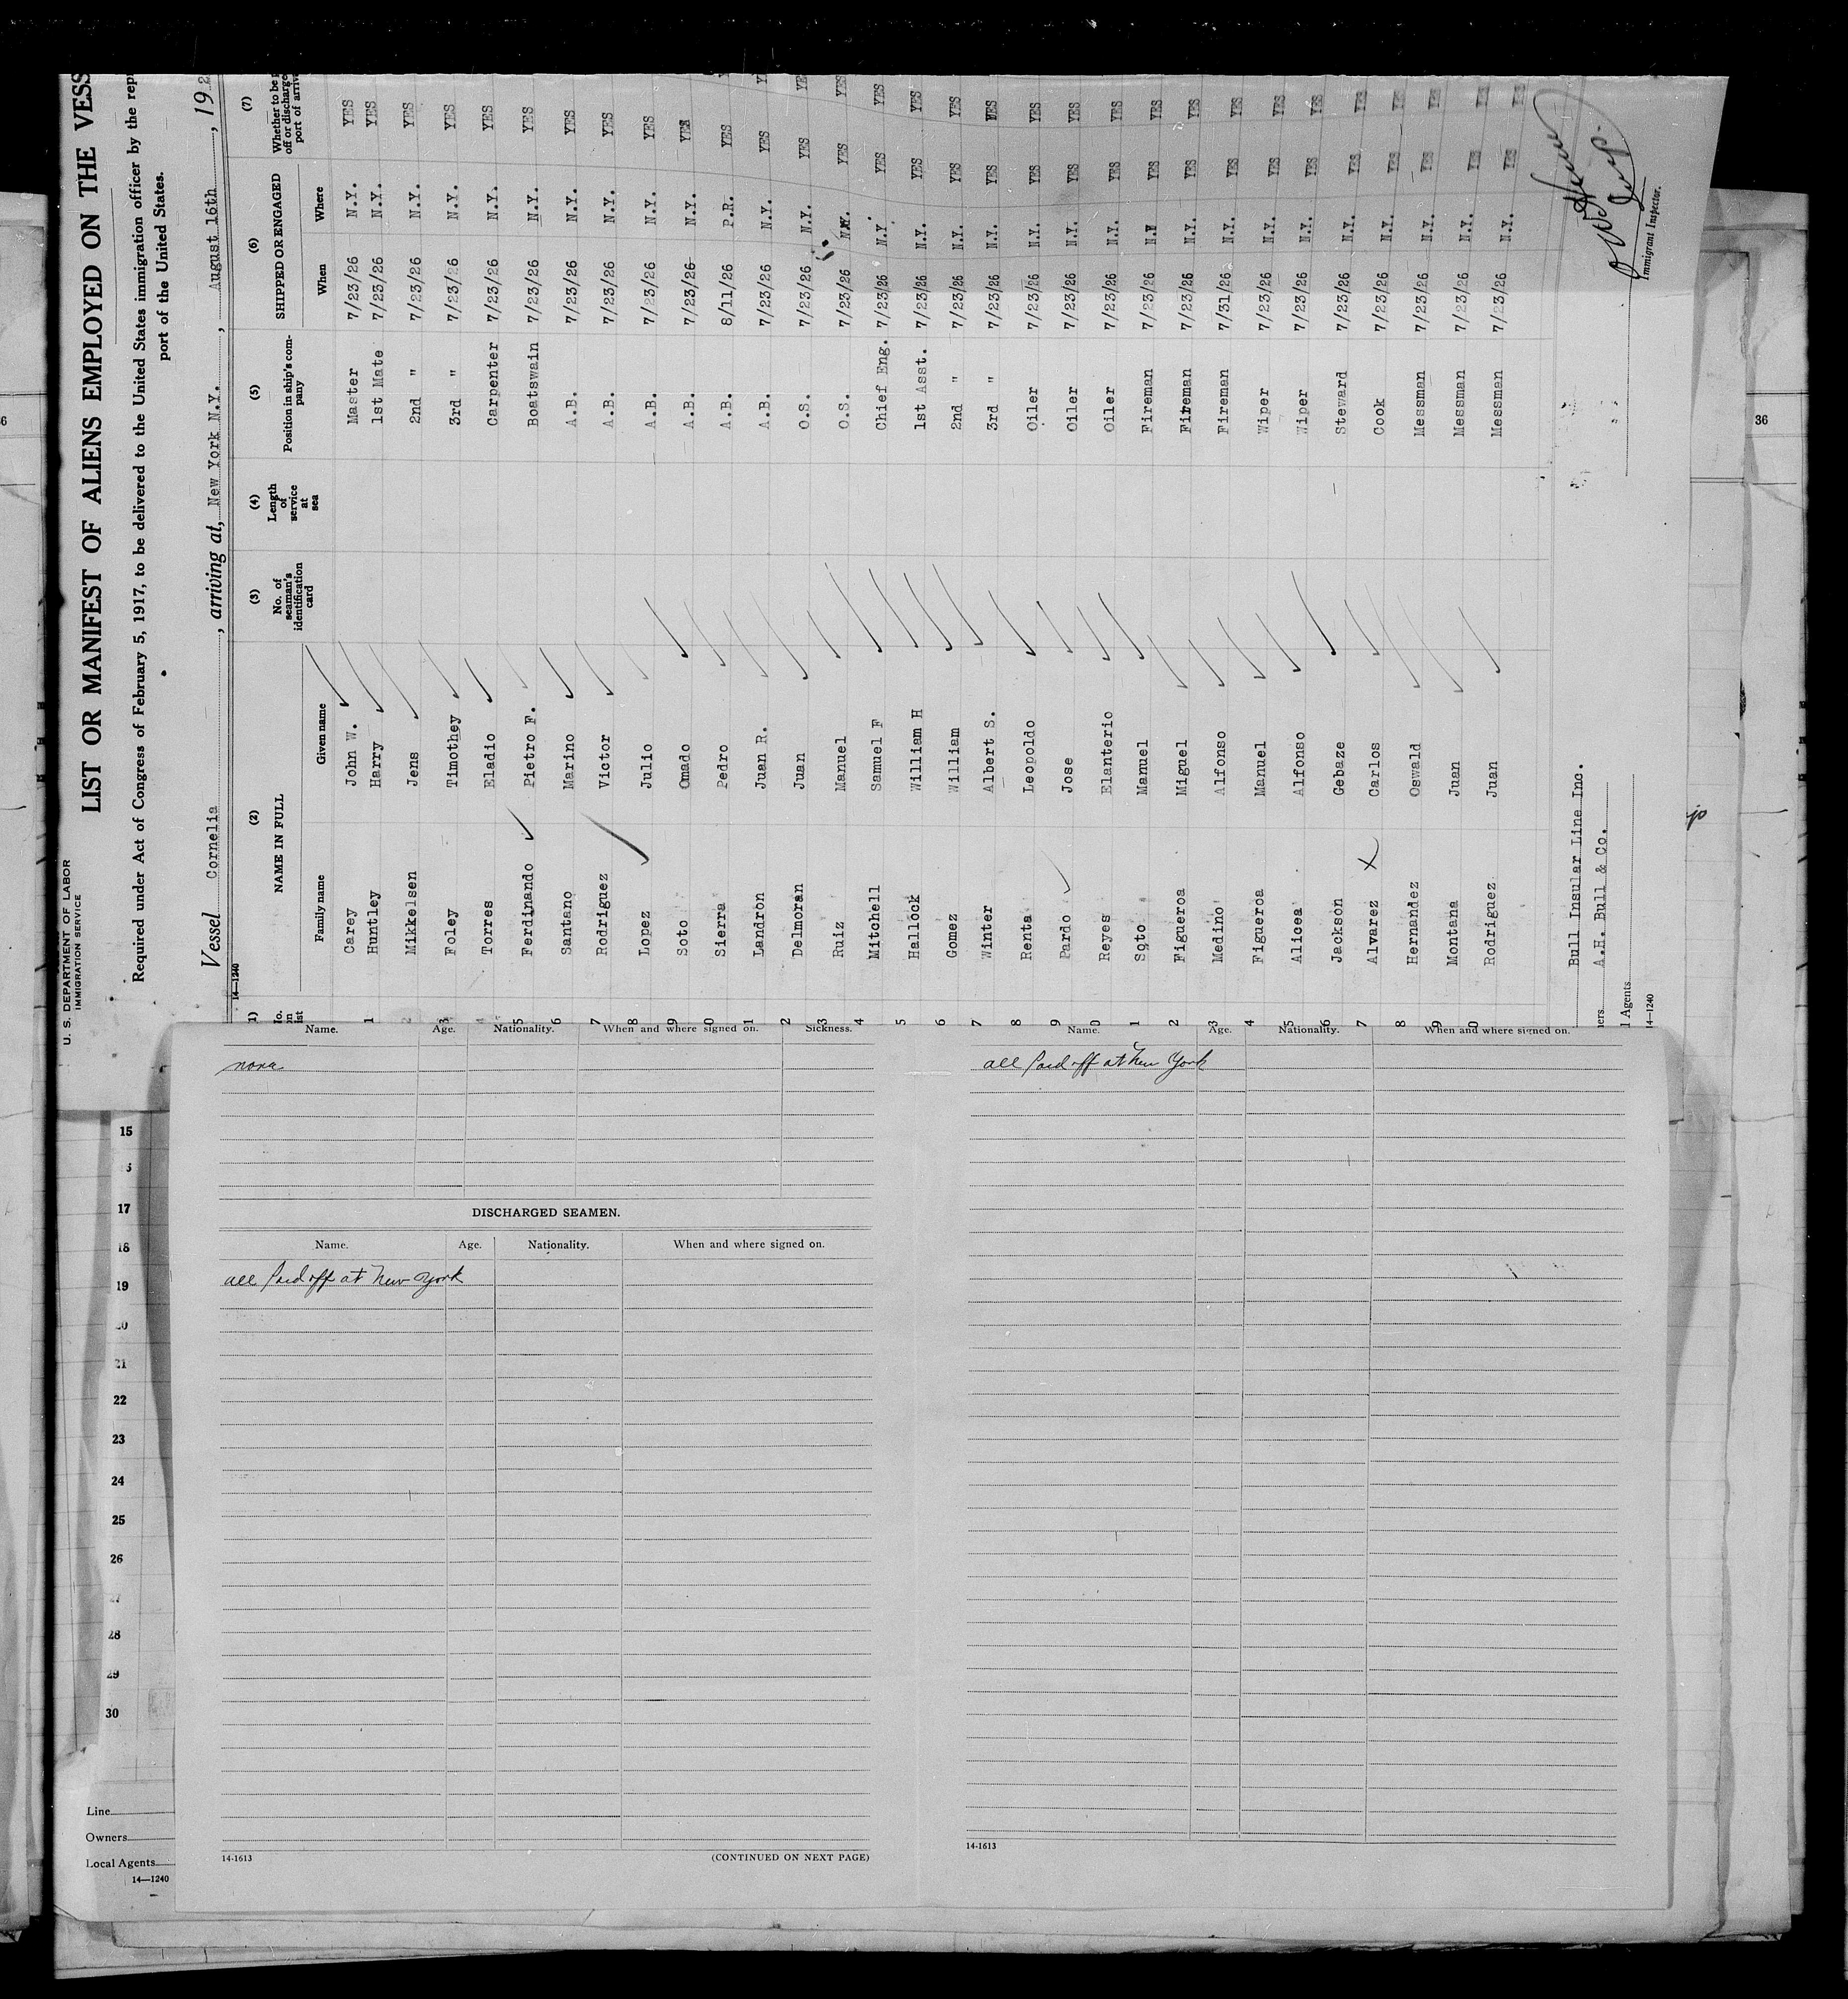 U. S. DEPARTMENT OF LABOR
IMMIGRATION SERVICE
LIST OR MANIFEST OF ALIENS EMPLOYED ON THE VESS
Required under Act of Congress of February 5, 1917, to be delivered to the United States immigration officer by the rep
port of the United States.
Vessel Cornelia, arriving at, New York N.Y., August 16th, 192
14—1240
(1) (2) (3) (4) (5) (6) (7)
NAME IN FULL No. of seaman's identification card Length of service at sea Position in ship's company SHIPPED OR ENGAGED Whether to be off or discharge port of arriv
Family name Given name When Where
Carey John W. Master 7/23/26 N.Y. YES
1 Huntley Harry 1st Mate 7/23/26 N.Y. YES
2 Mikkelsen Jens 2nd " 7/23/26 N.Y. YES
3 Foley Timothey 3rd " 7/23/26 N.Y. YES
4 Torres Eladio Carpenter 7/23/26 N.Y. YES
5 Ferdinando Pietro F. Boatswain 7/23/26 N.Y. YES
6 Santano Marino A.B. 7/23/26 N.Y. YES
7 Rodriguez Victor A.B. 7/23/26 N.Y. YES
8 Lopez Julio A.B. 7/23/26 N.Y. YES
9 Soto Omado A.B. 7/23/26 N.Y. YES
0 Sierra Pedro A.B. 8/11/26 P.R. YES
1 Landron Juan R. A.B. 7/23/26 N.Y. YES
2 Delmoran Juan O.S. 7/23/26 N.Y. YES YES
3 Ruiz Manuel O.S. 7/23/26 N.Y. YES YES
4 Mitchell Samuel F Chief Eng. 7/23/26 N.Y. YES YES
5 Hallock William H 1st Asst. 7/23/26 N.Y. YES YES
6 Gomez William 2nd " 7/23/26 N.Y. YES YES
7 Winter Albert S. 3rd " 7/23/26 N.Y. YES YES
8 Renta Leopoldo Oiler 7/23/26 N.Y. YES YES
9 Pardo Jose Oiler 7/23/26 N.Y. YES YES
0 Reyes Elanterio Oiler 7/23/26 N.Y. YES YES
1 Soto Manuel Fireman 7/23/26 N.Y YES YES
2 Figueroa Miguel Fireman 7/23/26 N.Y. YES YES
3 Medino Alfonso Fireman 7/31/26 N.Y. YES YES
4 Figueroa Manuel Wiper 7/23/26 N.Y. YES YES
5 Alicea Alfonso Wiper 7/23/26 N.Y. YES YES
6 Jackson Gebaze Steward 7/23/26 N.Y. YES YES
7 Alvarez Carlos Cook 7/23/26 N.Y. YES YES
8 Hernandez Oswald Messman 7/23/26 N.Y. YES YES
9 Montana Juan Messman 7/23/26 N.Y. YES YES
0 Rodriguez Juan Messman 7/23/26 N.Y. YES YES
Bull Insular Line Inc.
ners. A.H. Bull & Co.
l Agents
14—1240
Immigrant Inspector.
Name. Age. Nationality. When and where signed on. Sickness.
none
DISCHARGED SEAMEN.
Name. Age. Nationality. When and where signed on.
all Paid off at New York
14-1613 (CONTINUED ON NEXT PAGE)
Name. Age. Nationality. When and where signed on.
all Paid off at New York
14-1613
15
17
18
19
20
21
22
23
24
25
26
27
28
29
30
Line
Owners
Local Agents
14—1240
36
36